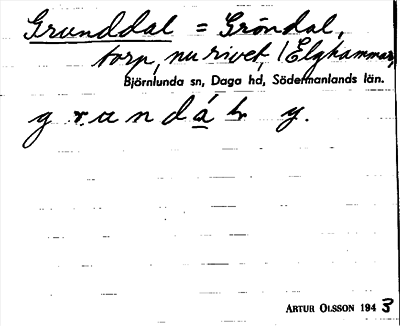 Grunddal = Gröndal,
torp, nu rivet, /Elghammar,
Björnlunda sn, Daga hd, Södermanlands län.
g r u n d á y.
ARTUR OLSSON 1943